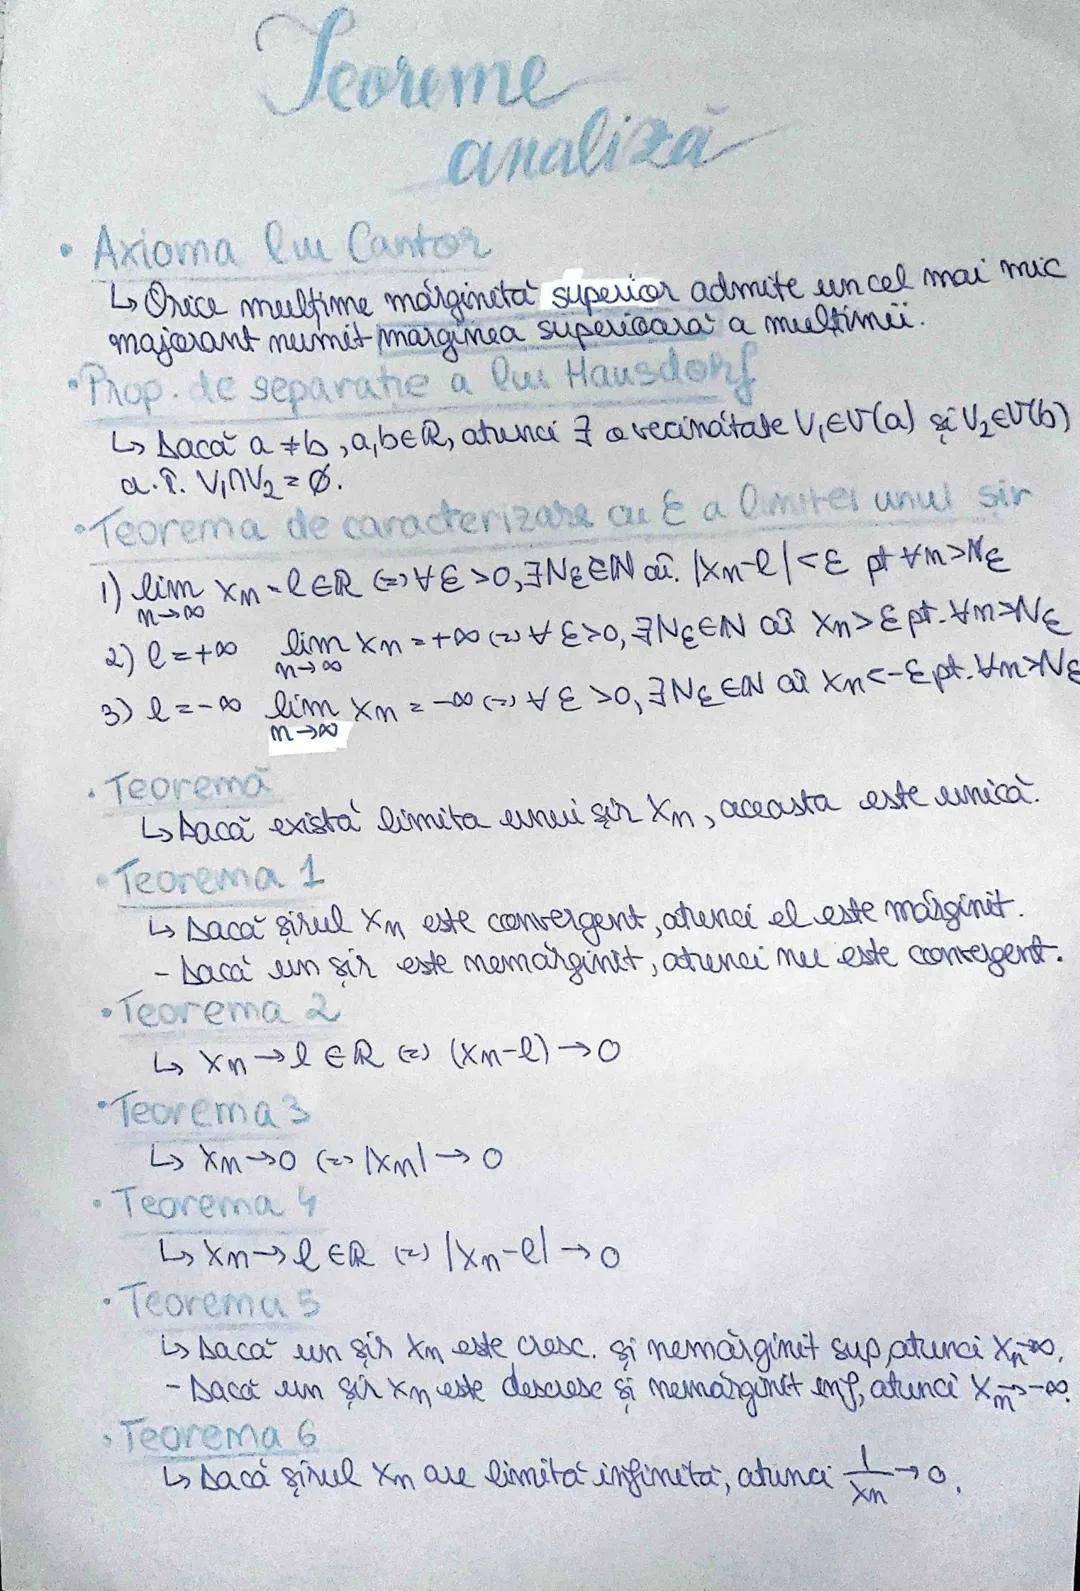 Teoreme
analiză
• Axioma lui Cantor
↳ Orice mulțime mărginită superior admite un cel mai mic
majorant numit marginea superioară a mulțimii.
• Prop. de separație a lui Hausdorf
↳ Dacă a ≠ b, a,b∈ℝ, atunci ∃ o vecinătate V₁∈V(a) și V₂∈V(b)
a.î. V₁∩V₂ = ∅.
• Teorema de caracterizare cu ε a limitei unui șir
1) lim xn = l∈ℝ (=) ∀ε>0, ∃Nε∈ℕ aî. |xn-l|<ε pt ∀n>Nε
n→∞
2) l=+∞ lim xn = +∞ (=) ∀ε>0, ∃Nε∈ℕ aî xn>ε pt. ∀n>Nε
n→∞
3) l=-∞ lim xn = -∞ (=) ∀ε>0, ∃Nε∈ℕ aî xn<-ε pt. ∀n>Nε
n→∞
• Teoremă
↳ Dacă există limita unui șir xn, aceasta este unică.
• Teorema 1
↳ Dacă șirul xn este convergent, atunci el este mărginit.
- Dacă un șir este nemărginit, atunci nu este convergent.
• Teorema 2
↳ xn→l∈ℝ (=) (xn-l)→0
• Teorema 3
↳ xn→0 (=) |xn|→0
• Teorema 4
↳ xn→l∈ℝ (=) |xn-l|→0
• Teorema 5
↳ Dacă un șir xn este cresc. și nemărginit sup, atunci xn→∞.
- Dacă un șir xn este descresc și nemărginit inf, atunci xn→-∞.
• Teorema 6
↳ Dacă șirul xn are limită infinită, atunci 1/xn→0.